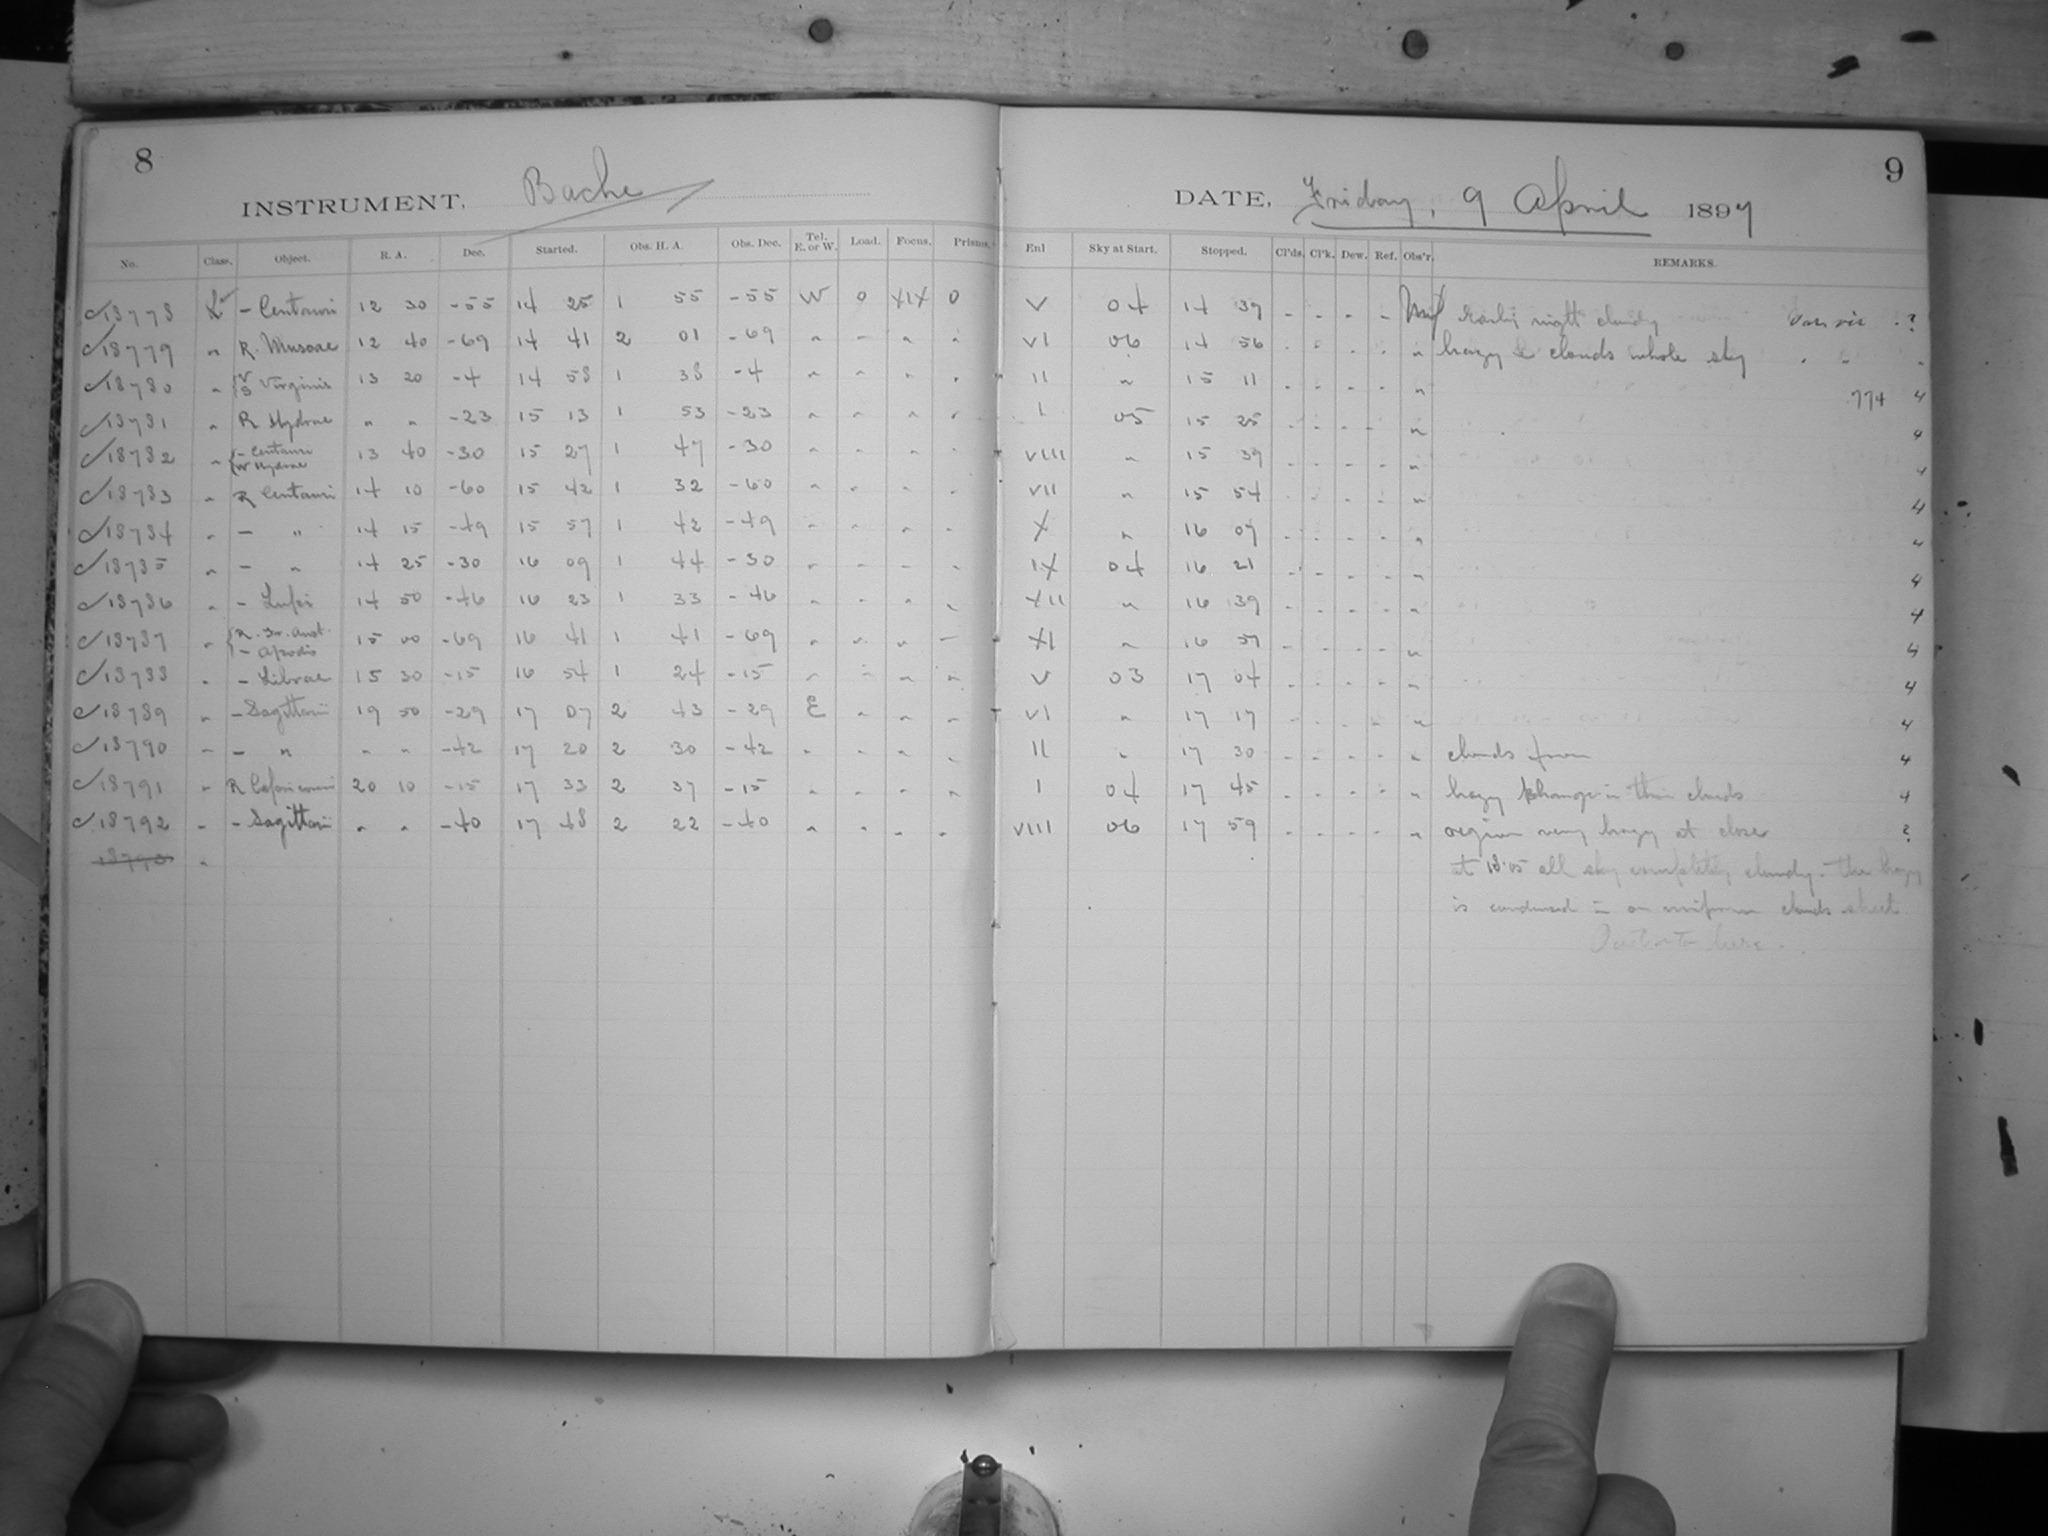 8
INSTRUMENT, Bache
DATE, Friday, 9 April 1897
9
No. Class. Object. R. A. Dec. Started. Obs. H. A. Obs. Dec. Tel. E. or W. Load. Focus. Prisms. Enl Sky at Start. Stopped. Cl'ds. Cl'k. Dew. Ref. Obs'r. REMARKS.
18778 - Centauri 12 30 -55 14 25 1 55 -55 W 0 XIX 0 V 04 14 39 - - - - Early night cloudy ?
18779 " R. Muscae 12 40 -69 14 41 2 01 -69 " " " " VI 06 14 56 - - - - " hazy & clouds whole sky " " "
18780 " V S Virginis 13 20 -4 14 58 1 38 -4 " " " " II " 15 11 - - - - " 774 4
18781 " R Hydrae " " -23 15 13 1 53 -23 " " " " I 05 15 25 - - - - " 4
18782 " { - Centauri W Hydrae 13 40 -30 15 27 1 47 -30 " " " " VIII " 15 39 - - - - " 4
18783 " R Centauri 14 10 -60 15 42 1 32 -60 " " " " VII " 15 54 - - - - " 4
18784 " - " 14 15 -49 15 57 1 42 -49 " " " " X " 16 07 - - - - " 4
18785 " - " 14 25 -30 16 09 1 44 -30 " " " " IX 04 16 21 - - - - " 4
18786 " - Lupi 14 50 -46 16 23 1 33 -46 " " " " XII " 16 39 - - - - " 4
18787 " { R. Tr. Aust. - Apodis 15 00 -69 16 41 1 41 -69 " " " " XI " 16 51 - - - - " 4
18788 " - Librae 15 30 -15 16 54 1 24 -15 " " " " V 03 17 04 - - - - " 4
18789 " - Sagittarii 19 50 -29 17 07 2 43 -29 E " " " VI " 17 17 - - - - " 4
18790 " - " " " -42 17 20 2 30 -42 " " " " II " 17 30 - - - - " clouds from 4
18791 " R Capricorni 20 10 -15 17 33 2 37 -15 " " " " I 04 17 45 - - - - " hazy change in thin clouds 4
18792 " - Sagittarii " " -40 17 48 2 22 -40 " " " " VIII 06 17 59 - - - - " region very hazy at close ?
18793 " at 18.05 all sky completely cloudy. The hazy
is condensed in an uniform clouds sheet